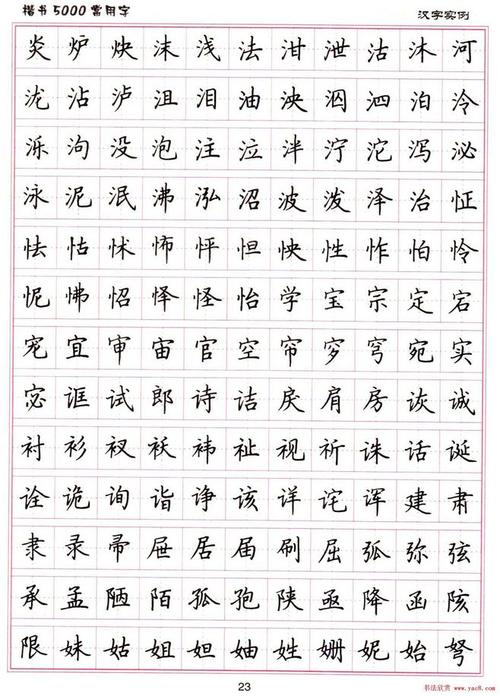 楷书5000常用字 汉字实例
炎炉炔沫浅法泔泄沽沐河
泷沾泸沮泪油泱泅泗泊泠
泺沟没泡注泣泮泞沱泻泌
泳泥泯沸泓沼波泼泽治怔
怯怙怵怖怦怛怏性怍怕怜
怩怫怊怿怪怡学宝宗定宕
宠宜审宙官空帘穸穹宛实
宓诓试郎诗诘戾肩房诙诚
衬衫衩袄袆祉视祈诛话诞
诠诡询诣诤该详诧诨建肃
隶录帚屉居届刷屈弧弥弦
承孟陋陌孤孢陕亟降函陔
限妹姑姐妲妯姓姗妮始弩
23
书法欣赏 www.yac8.com